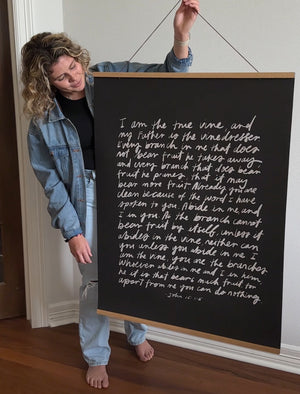 I am the true vine, and
my Father is the vinedresser
Every branch in me that does
not bear fruit he takes away
and every branch that does bear
fruit he prunes that it may
bear more fruit Already you are
clean because of the word I have
spoken to you Abide in me and
I in you As the branch cannot
bear fruit by itself, unless it
abides in the vine neither can
you unless you abide in me I
am the vine you are the branches
Whoever abides in me and I in him,
he it is that bears much fruit for
apart from me you can do nothing
John 15:1-5